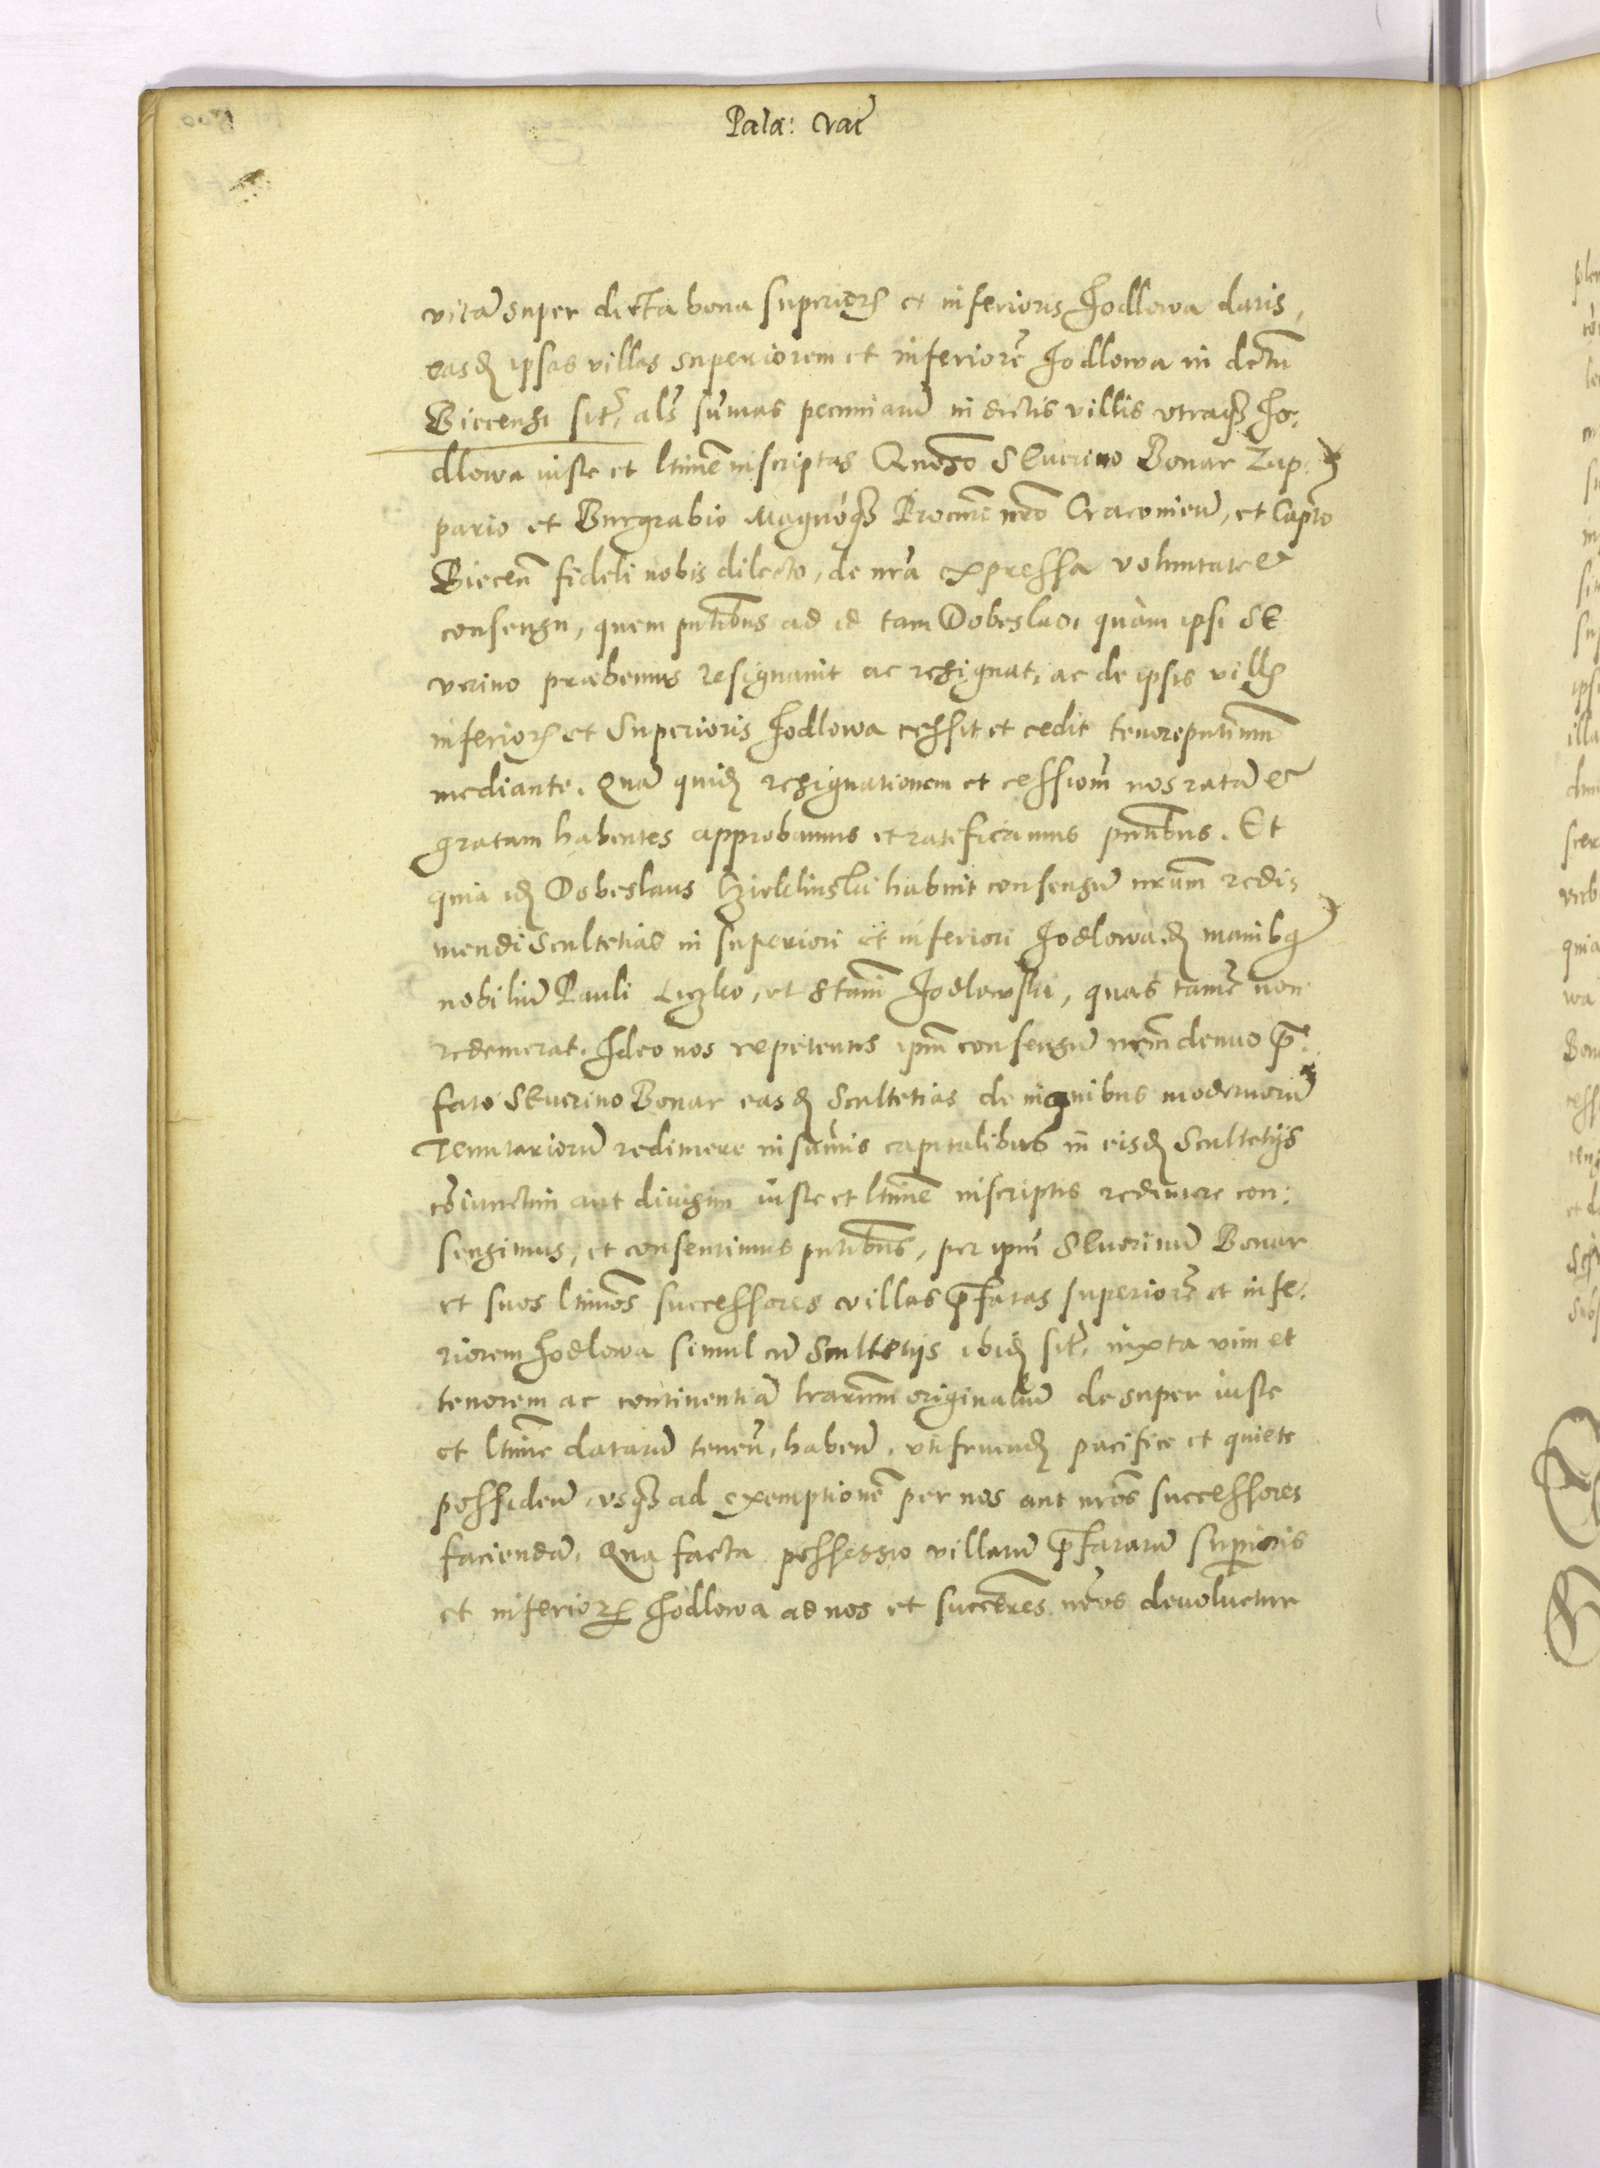 Pala: Crac̃
vitã super dicta bona superior̃ et inferioris Jodlowa datis,
easdẽ ipsas villas superiorem et inferiorẽ Jodlowa in dctũ
Biecensi sit̃. als sũmas pecuniarũ in dictis villis vtraqȝ Jo:
dlowa iuste et ltimẽ inscriptas Gnoso Seuerino Bonar Zup:
pario et Burgrabio Magnoqȝ Procurẽ nrõ Cracovieñ, et Capto
Bieceñ fideli nobis dilecto, de nrã expressa voluntate et
consensu, quem pntibus ad id tam Dobeslao, quàm ipsi Se
uerino præbemus resignauit ac resignat, ac de ipsis vill̃
inferior̃ et Superioris Jodlowa cessit et cedit tenore pntium
mediante. Quã quidẽ resignationem et cessionẽ nos ratã et
gratam habentes approbamus et ratificamus pntibus. Et
quia idẽ Dobeslaus Czieklinski habuit consensũ nrum redi:
mendi Scultetias in superiori et inferiori Jodlowa de manibus
nobiliũ Pauli Liczko, et Stani Jodlowski, quas tamẽ non
redemerat. Ideo nos repetentes ipm consensũ nrm denuo præ:
fato Seuerino Bonar easdẽ Scultetias de manibus modernorũ
Tenutariorũ redimere in sũmis capitalibus in eisdẽ Scultetijs
cõiunctim aut diuisim iuste et ltimẽ inscriptis redimere con:
sensimus, et consentimus pntibus, per ipm Seuerinũ Bonar
et suos ltimos successores villas præfatas superiorẽ et infe:
riorem Jodlowa simul cũ Scultetijs ibidẽ sit̃, iuxta vim et
tenorem ac continentiã lrarum originaliũ desuper iuste
et ltime datarũ teneñ, habeñ, vtifruendẽ pacifice et quiete
possideñ, vsqȝ ad exemptionẽ per nos aut nros successores
faciendã. Qua facta possessio villarũ præfatarũ superioris
et inferior̃ Jodlowa ad nos et succeres nros deuoluetur